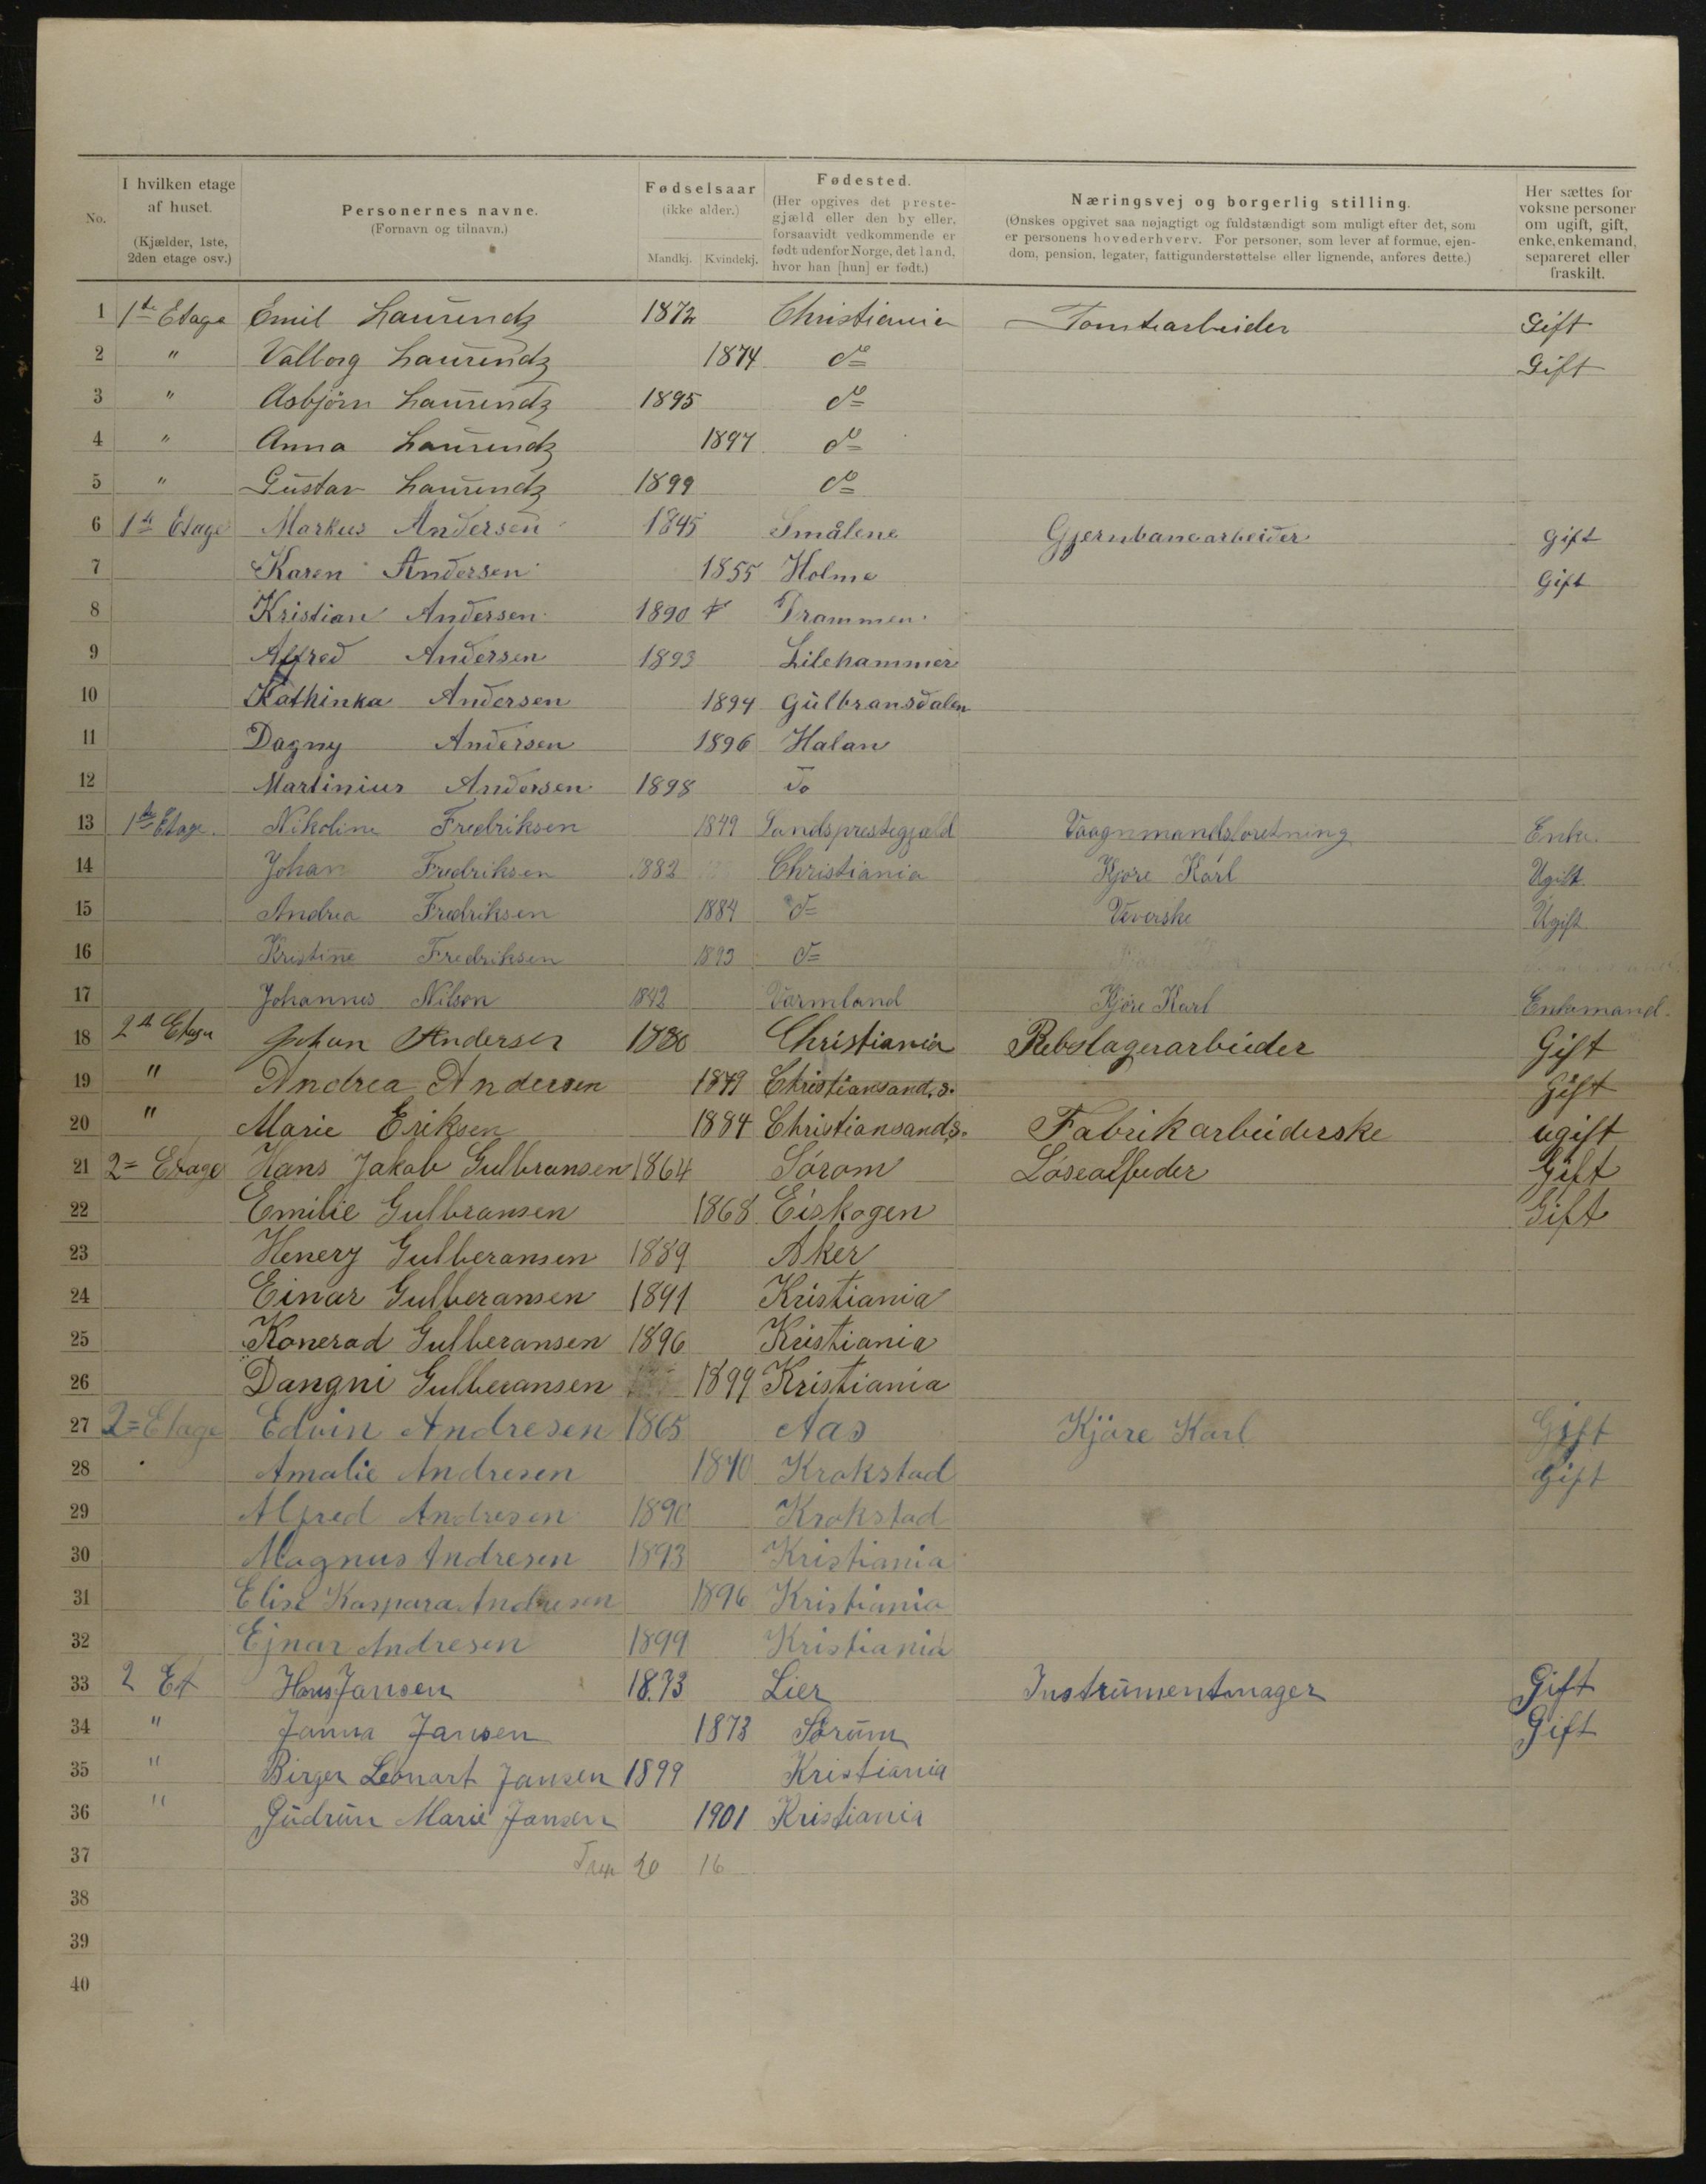 No.
I hvilken etage af huset. (Kjælder, 1ste, 2den etage osv.)
Personernes navne. (Fornavn og tilnavn.)
Fødselsaar (ikke alder.) Mandkj. Kvindekj.
Fødested. (Her opgives det prestegjæld eller den by eller, forsaavidt vedkommende er født udenfor Norge, det land, hvor han [hun] er født.)
Næringsvej og borgerlig stilling. (Ønskes opgivet saa nøjagtigt og fuldstændigt som muligt efter det, som er personens hovederhverv. For personer, som lever af formue, ejendom, pension, legater, fattigunderstøttelse eller lignende, anføres dette.)
Her sættes for voksne personer om ugift, gift, enke, enkemand, separeret eller fraskilt.
1 1ste Etage Emil Laurendz 1872 Christiania Tomtearbeider Gift
2 " Valborg Laurendz 1874 do Gift
3 " Asbjörn Laurendz 1895 do
4 " Anna Laurendz 1897 do
5 " Gustav Laurendz 1899 do
6 1ste Etage Markus Andersen 1845 Smålene Gjernbanearbeider Gift
7 Karen Andersen 1855 Holme Gift
8 Kristian Andersen 1890 Drammen
9 Alfred Andersen 1893 Lilehammer
10 Kathinka Andersen 1894 Gulbransdalen
11 Dagny Andersen 1896 Halan
12 Martinius Andersen 1898 do
13 1ste Etage. Nikoline Fredriksen 1849 Sandsprestegjæld Vognmandsforetning Enke.
14 Johan Fredriksen 1882 Christiania Kjøre Karl Ugift
15 Andrea Fredriksen 1884 do Veverske Ugift
16 Kristine Fredriksen 1893 do
17 Johannes Nilson 1842 Varmland Kjøre Karl Enkemand.
18 2den Etage Johan Andersen Christiania Rebslagerarbeider Gift
19 " Andrea Andersen 1849 Christiansand.s. Gift
20 " Marie Eriksen 1884 Christiansands. Fabrikarbeiderske ugift
21 2= Etage Hans Jakob Gulbransen 1864 Sórom Gift
22 Emilie Gulbransen 1868 Eiskogen Gift
23 Henery Gulberansen 1889 Aker
24 Einar Gulberansen 1891 Kristiania
25 Konerad Gulberansen 1896 Kristiania
26 Dangni Gulberansen 1899 Kristiania
27 2= Etage Edvin Andresen 1865 Aas Kjöre Karl Gift
28 Amalie Andresen Krokstad Gift
29 Alfred Andresen 1890 Krokstad
30 Magnus Andresen 1893 Kristiania
31 Elise Kaspara Andresen 1896 Kristiania
32 Ejnar Andresen 1899 Kristiania
33 2 Et Hans Jansen 18.73 Lier Instrumentmager Gift
34 " Janna Jansen 1873 Sørum Gift
35 " Birger Leonart Jansen 1899 Kristiania
36 " Gudrun Marie Jansen 1901 Kristiania
37 20 16
38
39
40